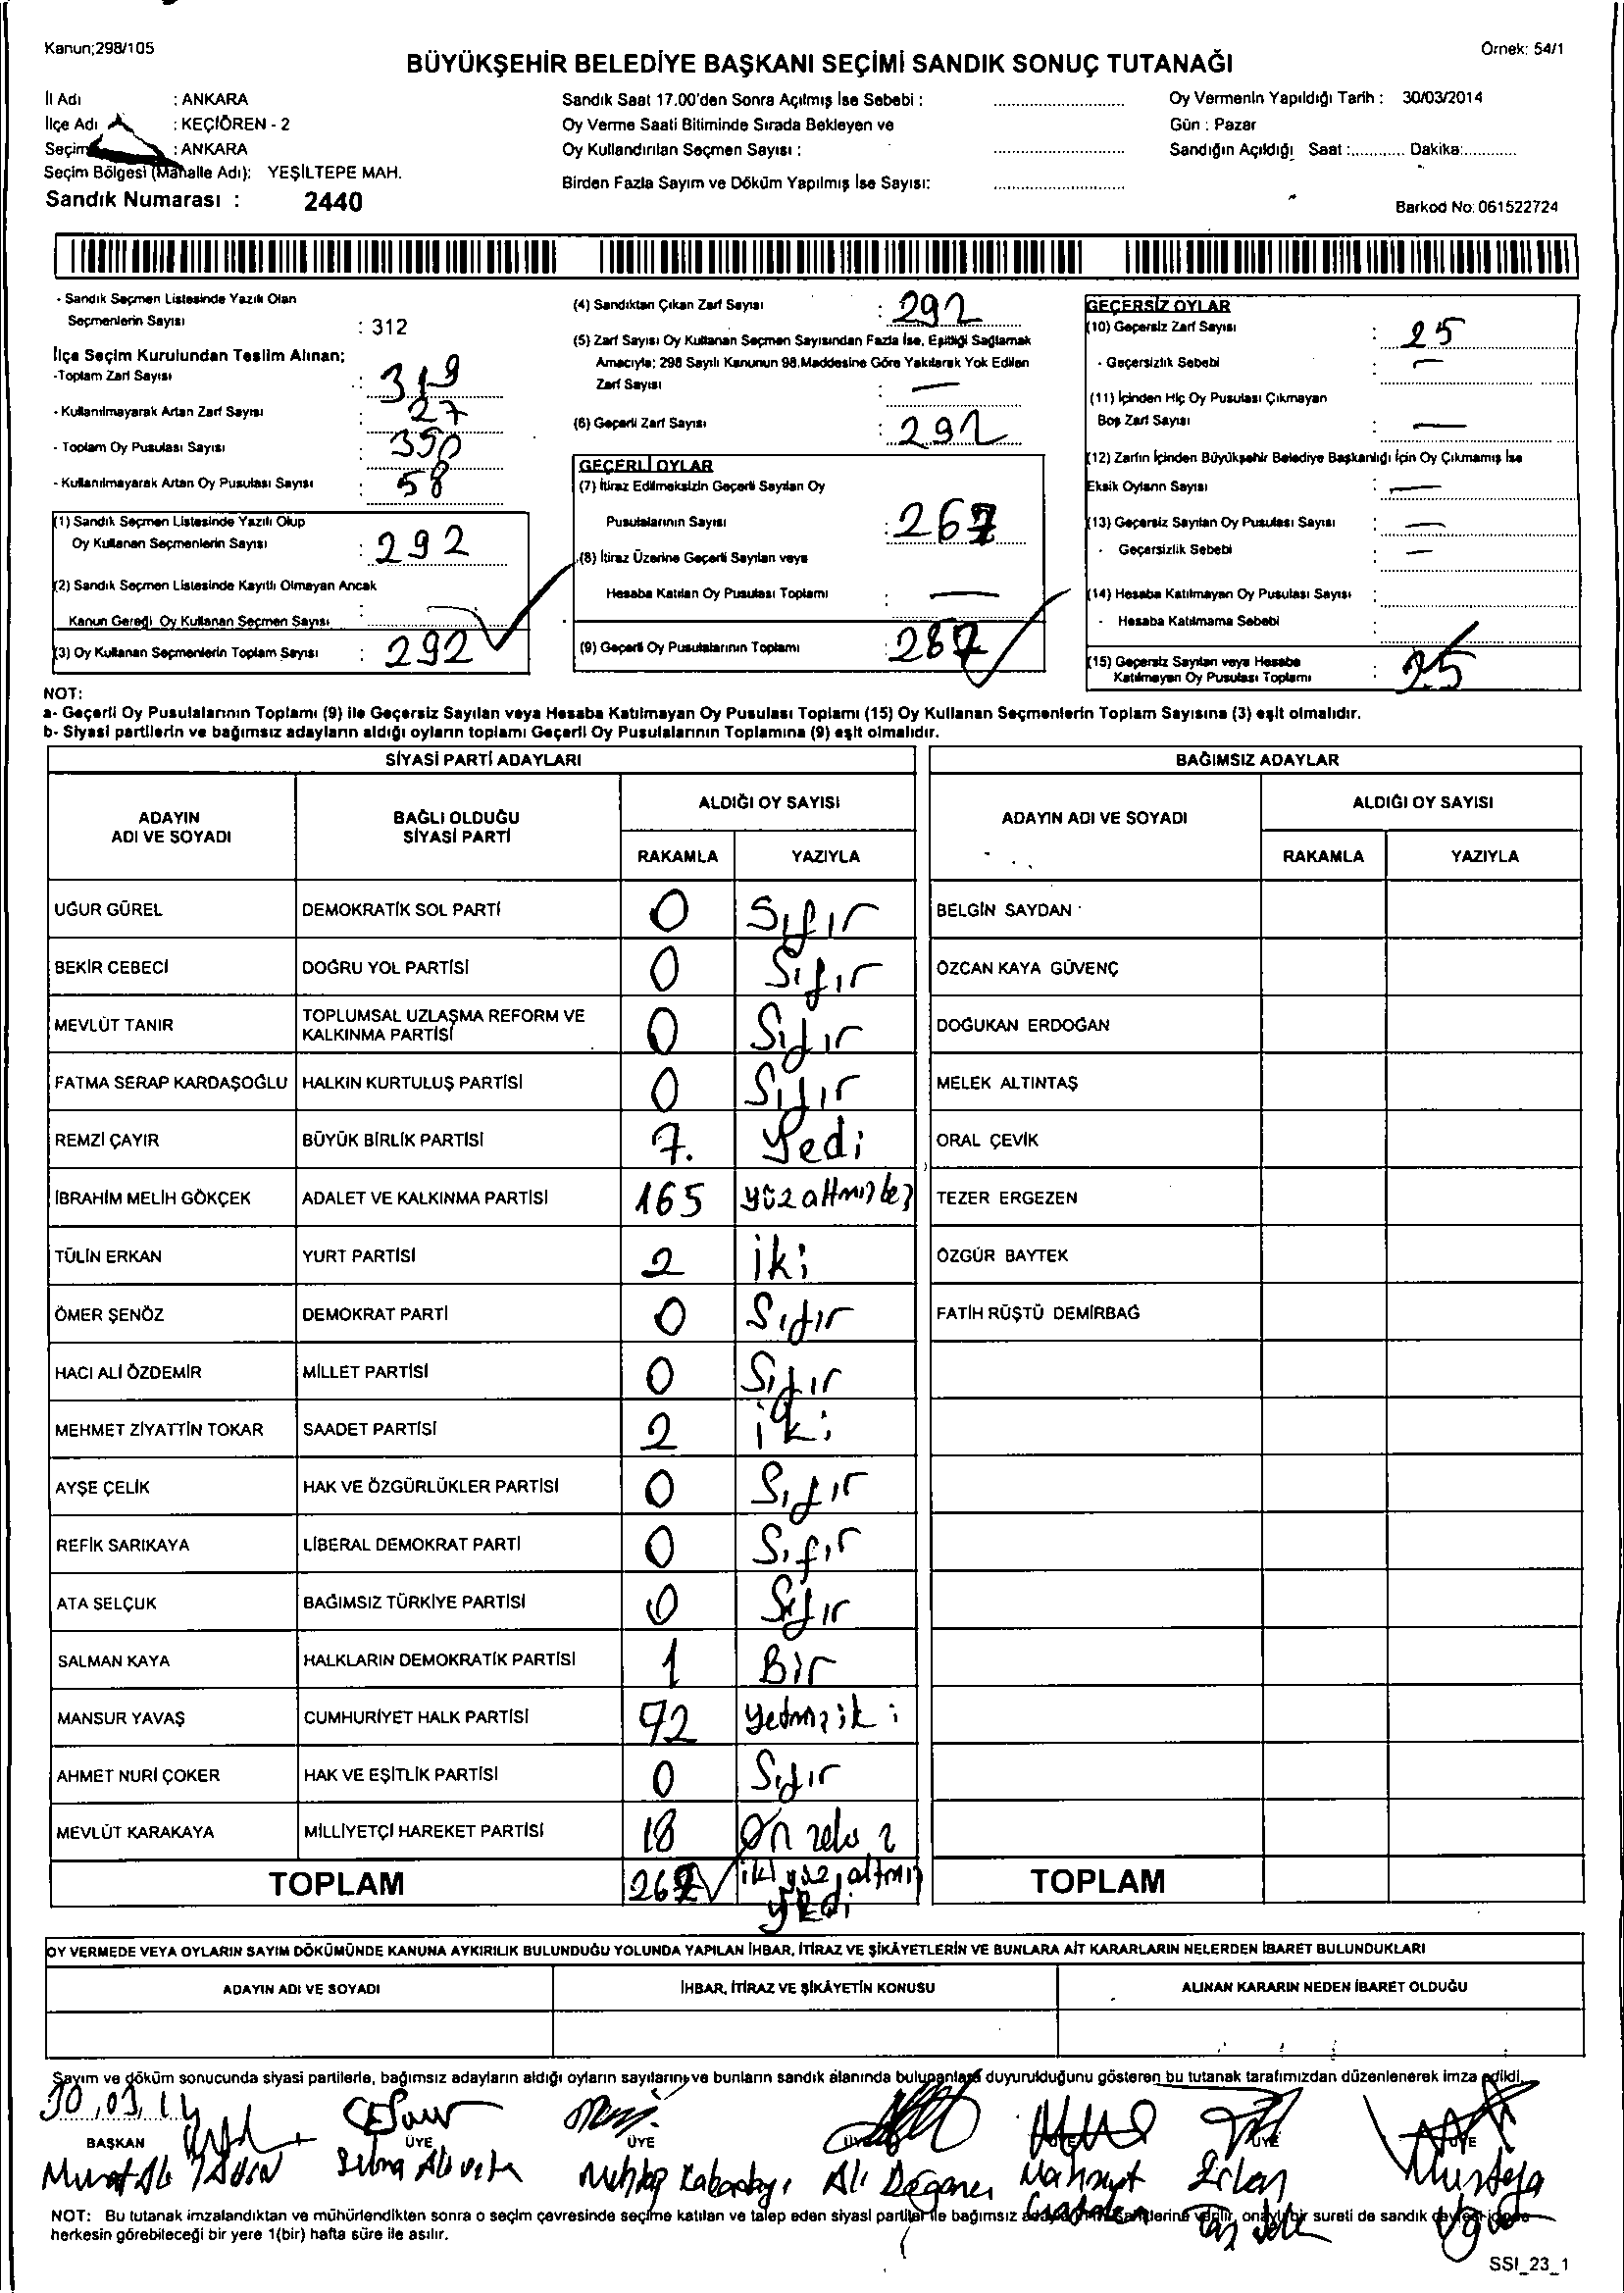 Kanun;298/105
Örnek: 54/1
BÜYÜKŞEHİR BELEDİYE BAŞKANI SEÇİMİ SANDIK SONUÇ TUTANAĞI
İl Adı : ANKARA
İlçe Adı : KEÇİÖREN - 2
Seçim : ANKARA
Seçim Bölgesi (Mahalle Adı): YEŞİLTEPE MAH.
Sandık Numarası : 2440
Sandık Saat 17.00'den Sonra Açılmış İse Sebebi :
Oy Verme Saati Bitiminde Sırada Bekleyen ve
Oy Kullandırılan Seçmen Sayısı :
Birden Fazla Sayım ve Döküm Yapılmış İse Sayısı:
Oy Vermenin Yapıldığı Tarih : 30/03/2014
Gün : Pazar
Sandığın Açıldığı Saat :............ Dakika:............
Barkod No: 061522724
- Sandık Seçmen Listesinde Yazılı Olan
Seçmenlerin Sayısı : 312
İlçe Seçim Kurulundan Teslim Alınan;
-Toplam Zarf Sayısı : 319
- Kullanılmayarak Artan Zarf Sayısı : 27
- Toplam Oy Pusulası Sayısı : 350
- Kullanılmayarak Artan Oy Pusulası Sayısı : 58
(1) Sandık Seçmen Listesinde Yazılı Olup
Oy Kullanan Seçmenlerin Sayısı : 292
(2) Sandık Seçmen Listesinde Kayıtlı Olmayan Ancak
Kanun Gereği Oy Kullanan Seçmen Sayısı : —
(3) Oy Kullanan Seçmenlerin Toplam Sayısı : 292
(4) Sandıktan Çıkan Zarf Sayısı : 292
(5) Zarf Sayısı Oy Kullanan Seçmen Sayısından Fazla İse, Eşitliği Sağlamak
Amacıyla; 298 Sayılı Kanunun 98.Maddesine Göre Yakılarak Yok Edilen
Zarf Sayısı : —
(6) Geçerli Zarf Sayısı : 292
GEÇERLİ OYLAR
(7) İtiraz Edilmeksizin Geçerli Sayılan Oy
Pusulalarının Sayısı : 267
(8) İtiraz Üzerine Geçerli Sayılan veya
Hesaba Katılan Oy Pusulası Toplamı : —
(9) Geçerli Oy Pusulalarının Toplamı : 267
GEÇERSİZ OYLAR
(10) Geçersiz Zarf Sayısı : 25
- Geçersizlik Sebebi : —
(11) İçinden Hiç Oy Pusulası Çıkmayan
Boş Zarf Sayısı : —
(12) Zarfın İçinden Büyükşehir Belediye Başkanlığı İçin Oy Çıkmamış İse
Eksik Oyların Sayısı : —
(13) Geçersiz Sayılan Oy Pusulası Sayısı : —
- Geçersizlik Sebebi : —
(14) Hesaba Katılmayan Oy Pusulası Sayısı :
- Hesaba Katılmama Sebebi :
(15) Geçersiz Sayılan veya Hesaba
Katılmayan Oy Pusulası Toplamı : 25
NOT:
a- Geçerli Oy Pusulalarının Toplamı (9) ile Geçersiz Sayılan veya Hesaba Katılmayan Oy Pusulası Toplamı (15) Oy Kullanan Seçmenlerin Toplam Sayısına (3) eşit olmalıdır.
b- Siyasi partilerin ve bağımsız adayların aldığı oyların toplamı Geçerli Oy Pusulalarının Toplamına (9) eşit olmalıdır.
SİYASİ PARTİ ADAYLARI BAĞIMSIZ ADAYLAR
ADAYIN ADI VE SOYADI BAĞLI OLDUĞU SİYASİ PARTİ ALDIĞI OY SAYISI ADAYIN ADI VE SOYADI ALDIĞI OY SAYISI
RAKAMLA YAZIYLA RAKAMLA YAZIYLA
UĞUR GÜREL DEMOKRATİK SOL PARTİ 0 Sıfır BELGİN SAYDAN
BEKİR CEBECİ DOĞRU YOL PARTİSİ 0 Sıfır ÖZCAN KAYA GÜVENÇ
MEVLÜT TANIR TOPLUMSAL UZLAŞMA REFORM VE KALKINMA PARTİSİ 0 Sıfır DOĞUKAN ERDOĞAN
FATMA SERAP KARDAŞOĞLU HALKIN KURTULUŞ PARTİSİ 0 Sıfır MELEK ALTINTAŞ
REMZİ ÇAYIR BÜYÜK BİRLİK PARTİSİ 7. Yedi ORAL ÇEVİK
İBRAHİM MELİH GÖKÇEK ADALET VE KALKINMA PARTİSİ 165 yüzaltmışbeş TEZER ERGEZEN
TÜLİN ERKAN YURT PARTİSİ 2 iki ÖZGÜR BAYTEK
ÖMER ŞENÖZ DEMOKRAT PARTİ 0 Sıfır FATİH RÜŞTÜ DEMİRBAĞ
HACI ALİ ÖZDEMİR MİLLET PARTİSİ 0 Sıfır
MEHMET ZİYATTİN TOKAR SAADET PARTİSİ 2 iki
AYŞE ÇELİK HAK VE ÖZGÜRLÜKLER PARTİSİ 0 Sıfır
REFİK SARIKAYA LİBERAL DEMOKRAT PARTİ 0 Sıfır
ATA SELÇUK BAĞIMSIZ TÜRKİYE PARTİSİ 0 Sıfır
SALMAN KAYA HALKLARIN DEMOKRATİK PARTİSİ 1 Bir
MANSUR YAVAŞ CUMHURİYET HALK PARTİSİ 72 yetmişiki
AHMET NURİ ÇOKER HAK VE EŞİTLİK PARTİSİ 0 Sıfır
MEVLÜT KARAKAYA MİLLİYETÇİ HAREKET PARTİSİ 18 On sekiz
TOPLAM 267 iki yüz altmış yedi TOPLAM
OY VERMEDE VEYA OYLARIN SAYIM DÖKÜMÜNDE KANUNA AYKIRILIK BULUNDUĞU YOLUNDA YAPILAN İHBAR, İTİRAZ VE ŞİKÂYETLERİN VE BUNLARA AİT KARARLARIN NELERDEN İBARET BULUNDUKLARI
ADAYIN ADI VE SOYADI İHBAR, İTİRAZ VE ŞİKÂYETİN KONUSU ALINAN KARARIN NEDEN İBARET OLDUĞU
Sayım ve döküm sonucunda siyasi partilerle, bağımsız adayların aldığı oyların sayılarını ve bunların sandık alanında bulunanlara duyurulduğunu gösteren bu tutanak tarafımızdan düzenlenerek imza edildi.
30.03.14
BAŞKAN ÜYE ÜYE ÜYE ÜYE ÜYE ÜYE
Murat Ali Selma Ali Mahmut Erkan Mustafa
NOT: Bu tutanak imzalandıktan ve mühürlendikten sonra o seçim çevresinde seçime katılan ve talep eden siyasi partiler ile bağımsız verilir, onaylı bir sureti de sandık
herkesin görebileceği bir yere 1(bir) hafta süre ile asılır.
SSI_23_1